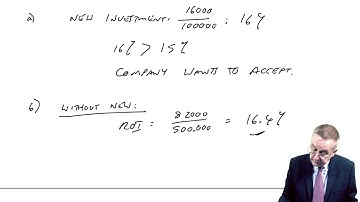 a) NEW INVESTMENT: 16000/100000 : 16%
16% > 15%
COMPANY WANTS TO ACCEPT.
b) WITHOUT NEW:
ROI = 82000/500.000 = 16.4%